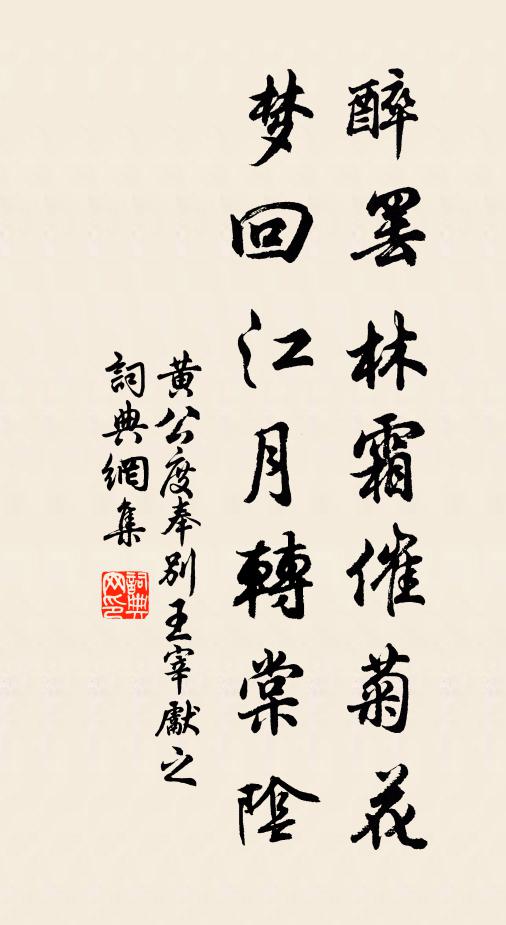 醉罢林霜催菊花
梦回江月轉棠陰
黄公度奉别王宰獻之
詞典網集
詞典网印